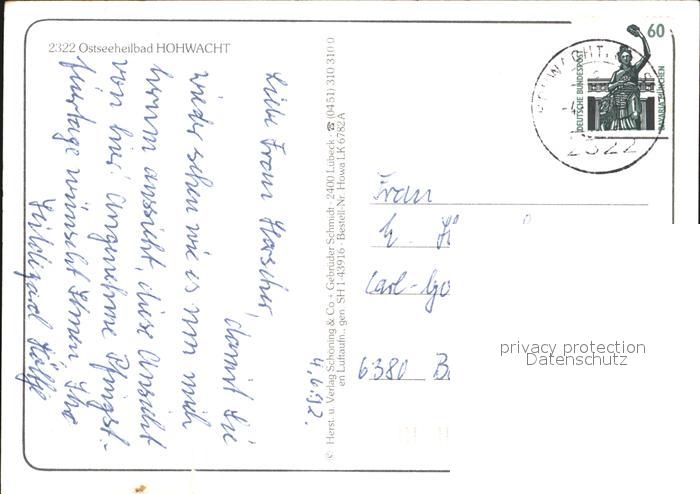 2322 Ostseeheilbad HOHWACHT
4.6.92.
Liebe Frau
damit Sie
wieder sehen wie es um mich
herum aussieht, diese Ansicht
von hier. Angenehme Pfingst-
feiertage wünscht Ihnen Ihre
Hildegard
© Herst. u. Verlag Schöning & Co + Gebrüder Schmidt · 2400 Lübeck ☎ (0451) 310 310 0
en Luftaufn., gen. SH 1-43916 · Bestell-Nr. Howa LK 6782A
60
DEUTSCHE BUNDESPOST
BAVARIA MÜNCHEN
HOHWACHT,
2322
Frau
Carl-
6380 B
privacy protection
Datenschutz